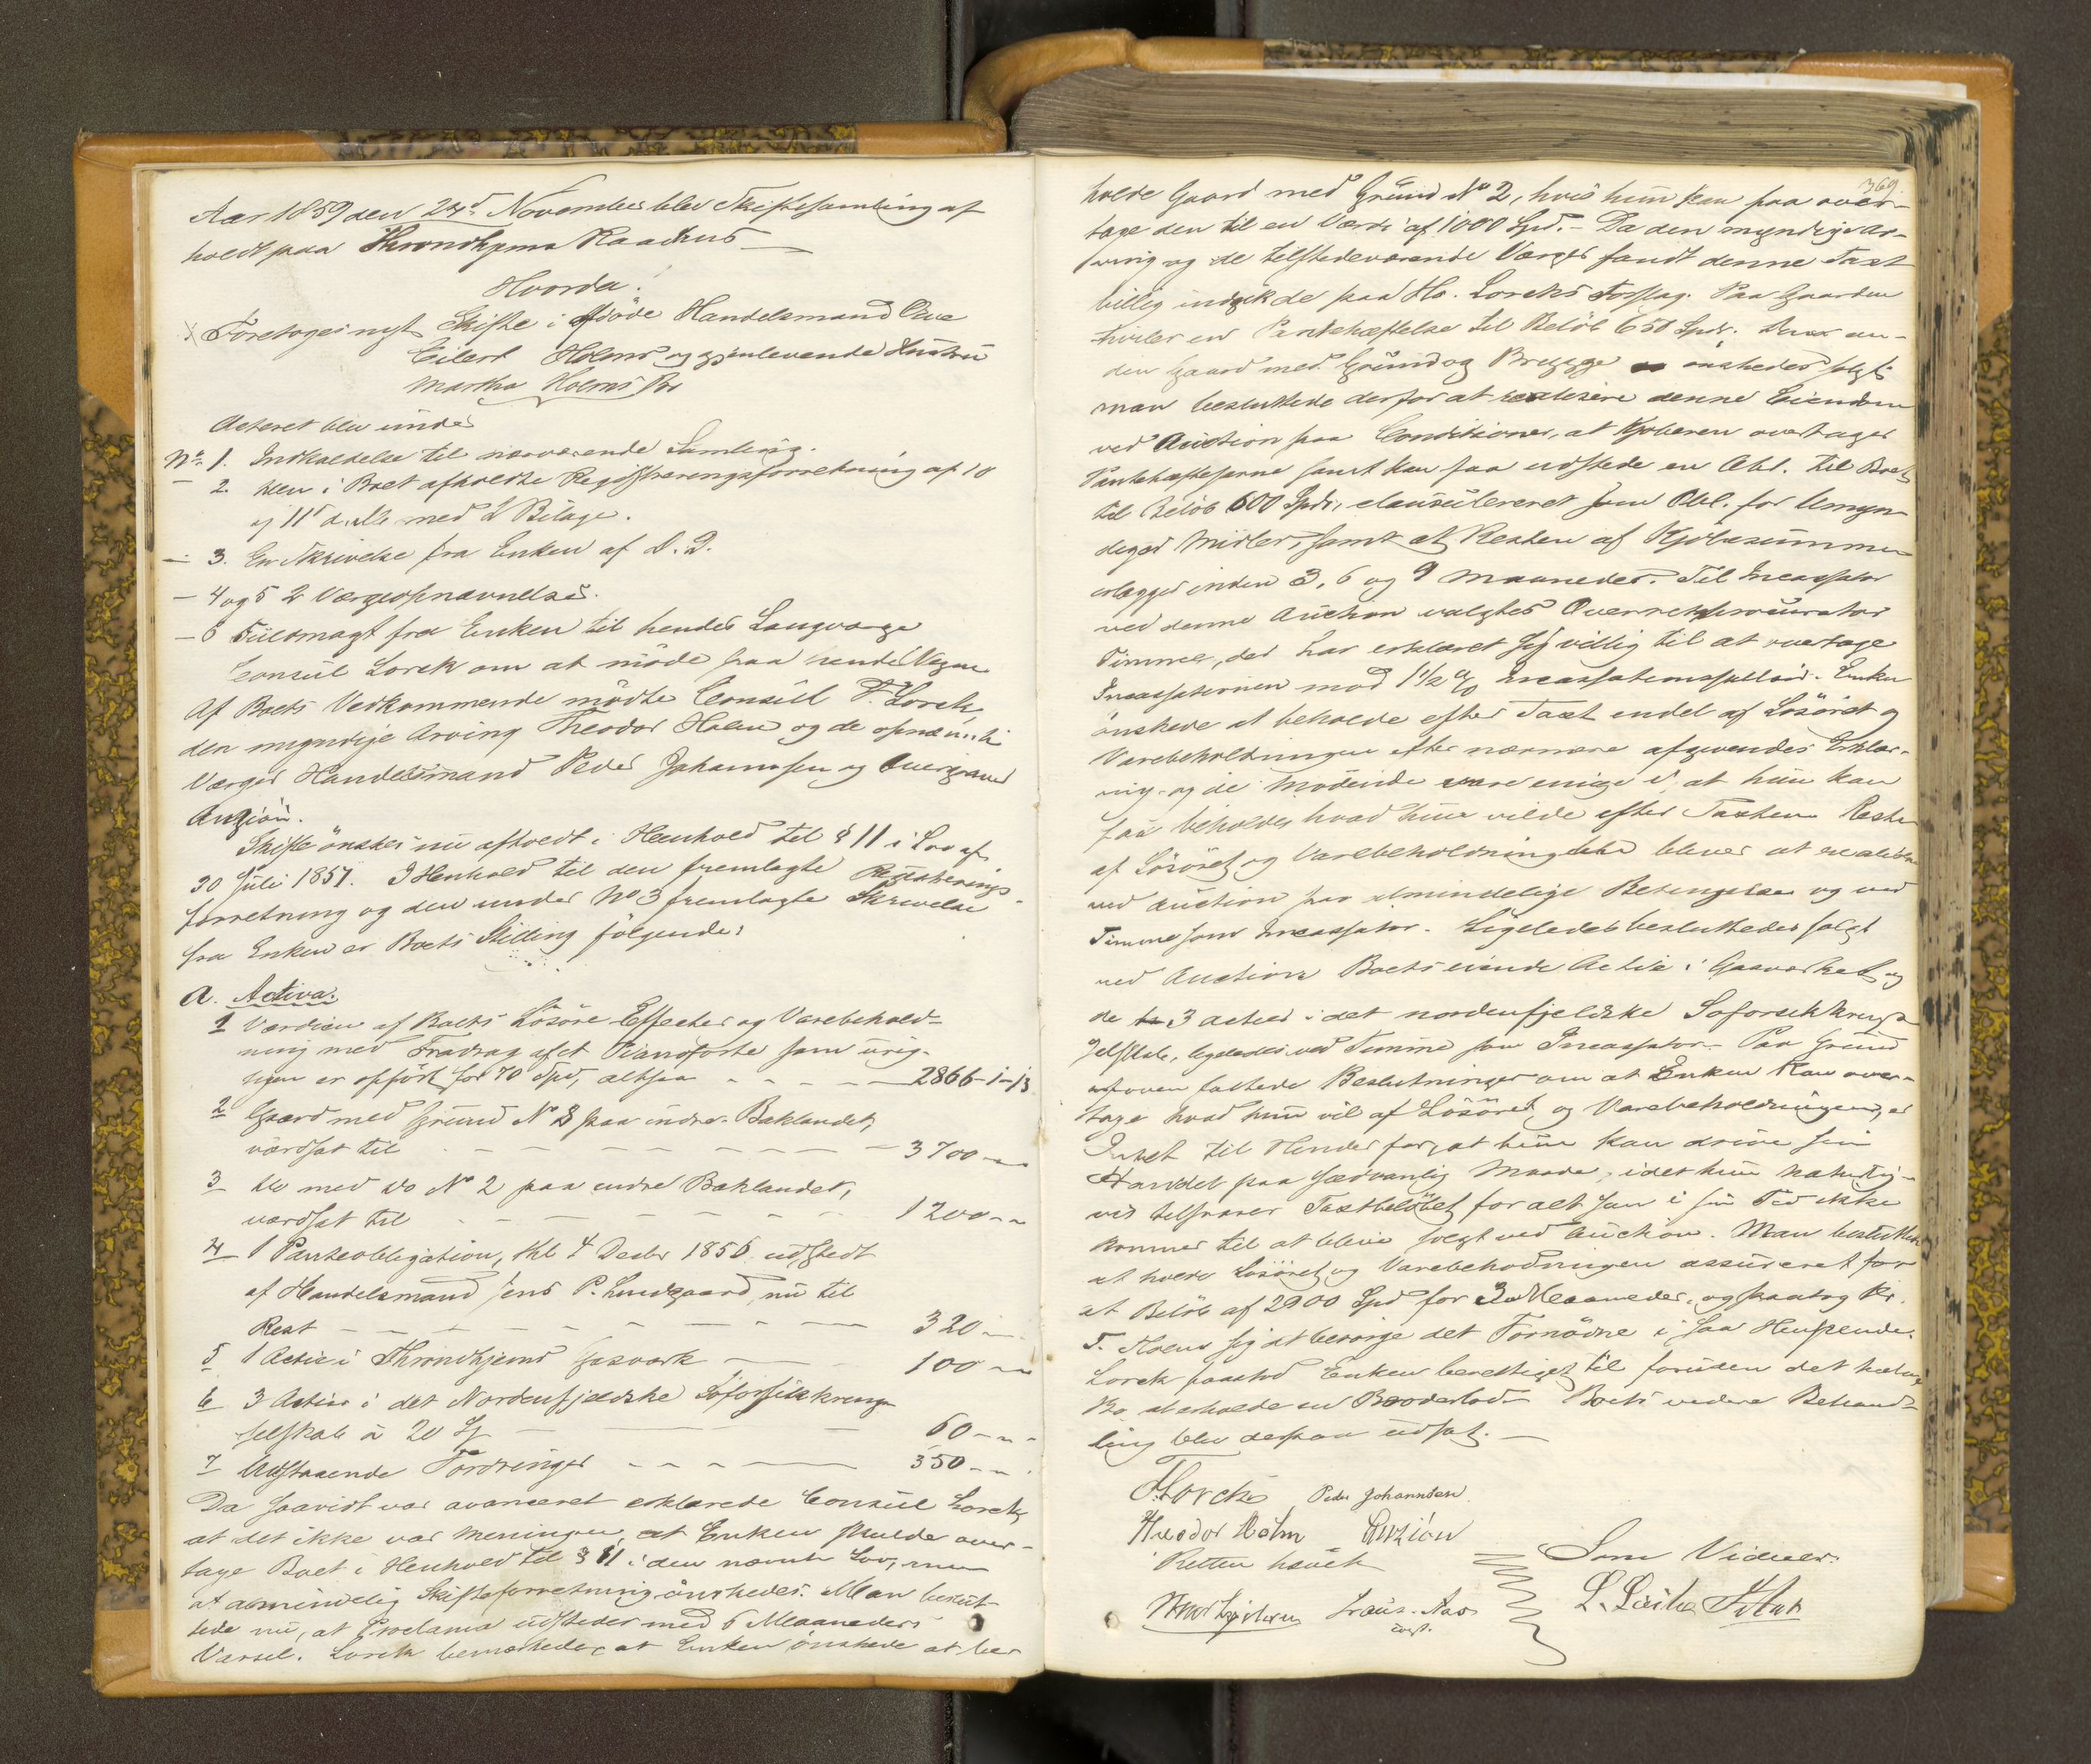 Aar 1859 den 24d November blev Skiftesamling af
holdt paa Throndhjems Raadhus
Hvorda:
Foretoges nyt Skifte i afdöde Handelsmand Ole
Eilert Holms og gjenlevende Hustru
Martha Holms Bo
Acteret blev under
No 1. Indkaldelse til nærværende Samling.
2. den i Boet afholdte Registreringsforretning af 10
og 11 d. M. med 2 Bilage.
- 3. En Skrivelse fra Enken af D. D.
- 4 og 5 2 Værgeopnævnelser.
- 6 Fuldmagt fra Enken til hendes Laugværge
Consul Lorck om at möde paa hendes Vegne
Af Boets Vedkommende mödte Consul F. Lorck,
den myndige Arving Theodor Holm og de opnævnte
Værger Handelsmand Peder Johannsen og
Anzjön.
Skifte önskes nu afholdt i Henhold til § 11 i Lov af
30 Juli 1851. I Henhold til den fremlagte Registrerings-
forretning og den under No 3 fremlagte Skrivelse
fra Enken er Boets Stilling fölgende:
A. Activa:
1 Værdien af Boets Lösöre Effecter og Varebehold-
ning med Fradrag af et Pianoforte som urig-
tigen er opfört for 70 Spd, altsaa - - - - 2866-1-13
2 Gaard med Grund No 8 paa indre Baklandet,
værdsat til - - - - - - - 3700 - -
3 do med do No 2 paa indre Baklandet,
værdsat til - - - - - - - 1200 - -
4 1 Panteobligation, dd 4 Decbr 1856 udstedt
af Handelsmand Jens P. Lundgaard, nu til
Rest - - - - - - - 320 - -
5 1 Actie i Throndhjems Gasværk - - 100 - -
6 3 Actier i det Nordenfjeldske Söforsikkrings
selskab à 20 Sp - - - 60 - - -
7 Udstaaende Fordringer - - - - 350 - - -
Da saavidt var avanceret erklærede Consul Lorck,
at det ikke var Meningen, at Enken skulde over-
tage Boet i Henhold til § 11 i den nævnte Lov, men
at almindelig Skifteforretning önskedes. Man beslut-
tede nu, at Proclama udstedes med 6 Maaneders
Varsel. Lorck bemærkede, at Enken önskede at be-
369.
holde Gaard med Grund No 2, hvis hun kan faa over-
tage den til en Værdi af 1000 Spd. - Da den myndige Ar-
ving og de tilstedeværende Værger fandt denne Taxt
billig indgik de paa Hr. Lorcks Forslag. Paa Gaarden
hviler en Pantehæftelse til Belöb 650 Spd; Den an-
den Gaard med Grund og Brygge önskedes solgt;
man besluttede derfor at realisere denne Eiendom
ved Auction paa Conditioner, at Kjöberen overtager
Pantehæftelserne samt kan faa udstede en Obl. til Boet
til Belöb 600 Spd, clausuleret som Obl. for Umyn-
diges Midler, samt at Resten af Kjöbesummen
erlægges inden 3, 6 og 9 Maaneder. Til Incassator
ved denne Auction valgtes Overretsprocurator
Timme, der har erklæret sig villig til at overtage
Incassationen mod 1 1/2 % Incassationssallair. Enken
önskede at beholde efter Taxt endel af Lösöret og
Varebeholdningen efter nærmere afgivendes Erklær-
ing, og de Mödende vare enige i, at hun kan
faa beholde, hvad hun vilde efter Taxten. Resten
af Lösöret og Varebeholdningen bliver at realisere
ved Auction paa almindelige Betingelser og med
Timme som Incassator. Ligeledes besluttedes solgt
ved Auction Boets eiende Actie i Gasværket og
de 3 Actier i det nordenfjeldske Söforsikkrings
selskab, ligeledes med Timme som Incassator. Paa Grund
af oven fattede Beslutninger om at Enken kan over-
tage hvad hun vil af Lösöret og Varebeholdningen, er
Intet til Hinder for, at hun kan drive sin
Handel paa sædvanlig Maade, idet hun naturlig-
vis tilsvarer Taxtbelöbet for alt som i sin Tid ikke
kommer til at blive solgt ved Auction. Man besluttede
at holde Lösöret og Varebeholdningen assureret for
et Belöb af 2900 Spd for 3 Maaneder, og paatog Hr.
T. Holm sig at besörge det Fornödne i saa Henseende.
Lorck paastod Enken berettiget til foruden det halve
Bo at erholde en Broderlod. Boets videre Behand-
ling blev derpaa udsat. -
F. Lorck Peder Johannsen
Theodor Holm Anzión
Retten hævet
Som Vidner: